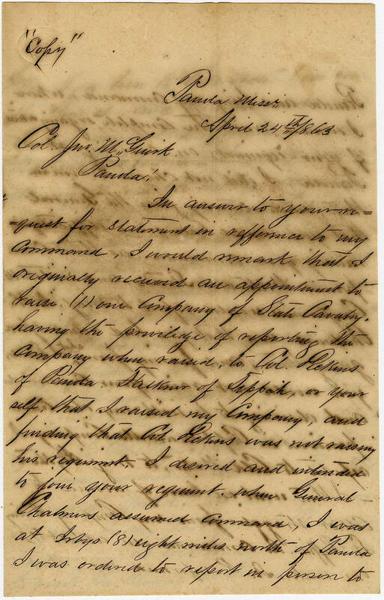 "Copy"
Panola Missi
April 24th/1863
Col. Jno. McGuirk
Panola,
In answer to your re-
-quest for statement in refference to my
Command, I would remark that I
originally received an appointment to
raise (1) one Company of State Cavalry,
having the priviledge of reporting the
Company when raised, to Col.
of Panola, Falkner of Tippah, or your
self, that I raised my Company, and
finding that Col. was not raising
his regiment, I desired and intended
to join your regiment, when General
Chalmers assumed command, I was
at Irbys (8) eight miles north of Panola
I was ordered to report in person to